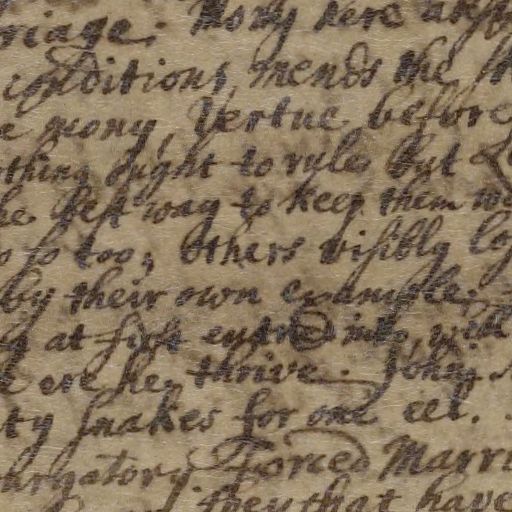 riage. Mony here
conditions, mends the
mony, Vertue before
thing ought to rule but
he best way to keep them
so so too, others visibly
by their own example.
at first entred into, will
ere he thrive.
ty snakes for one eel.
urgatory. Forced Marri
they that have